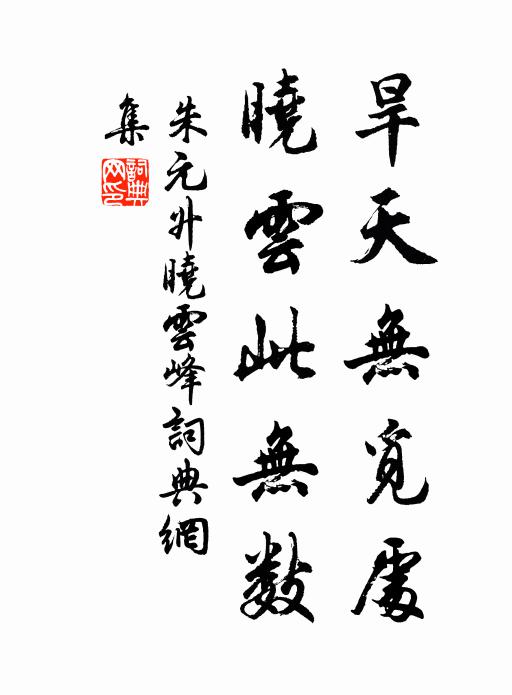 旱天無覓處
曉雲此無數
朱元升曉雲峰詞典網
集
詞典網印